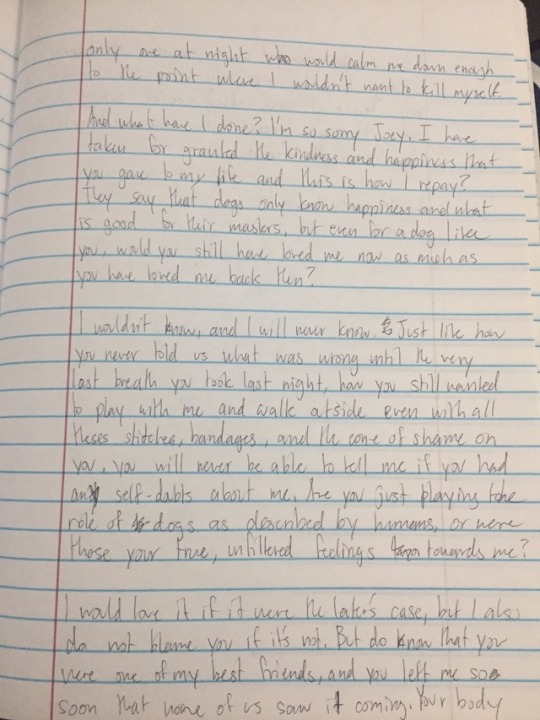 only one at night who would calm me down enough
to the point where I wouldn't want to kill myself.
And what have I done? I'm so sorry Joey. I have
taken for granted the kindness and happiness that
you gave to my life and this is how I repay?
They say that dogs only know happiness and what
is good for their masters, but even for a dog like
you, would you still have loved me now as much as
you have loved me back then?
I wouldn't know, and I will never know. Just like how
you never told us what was wrong until the very
last breath you took last night, how you still wanted
to play with me and walk outside even with all
theses stitches, bandages, and the cone of shame on
you, you will never be able to tell me if you had
any self-dabts about me. Are you just playing the
role of dogs as described by humans, or were
those your true, unfiltered feelings towards me?
I would love it if it were the later's case, but I also
do not blame you if it's not. But do know that you
were one of my best friends, and you left me so
soon that none of us saw it coming. Your body